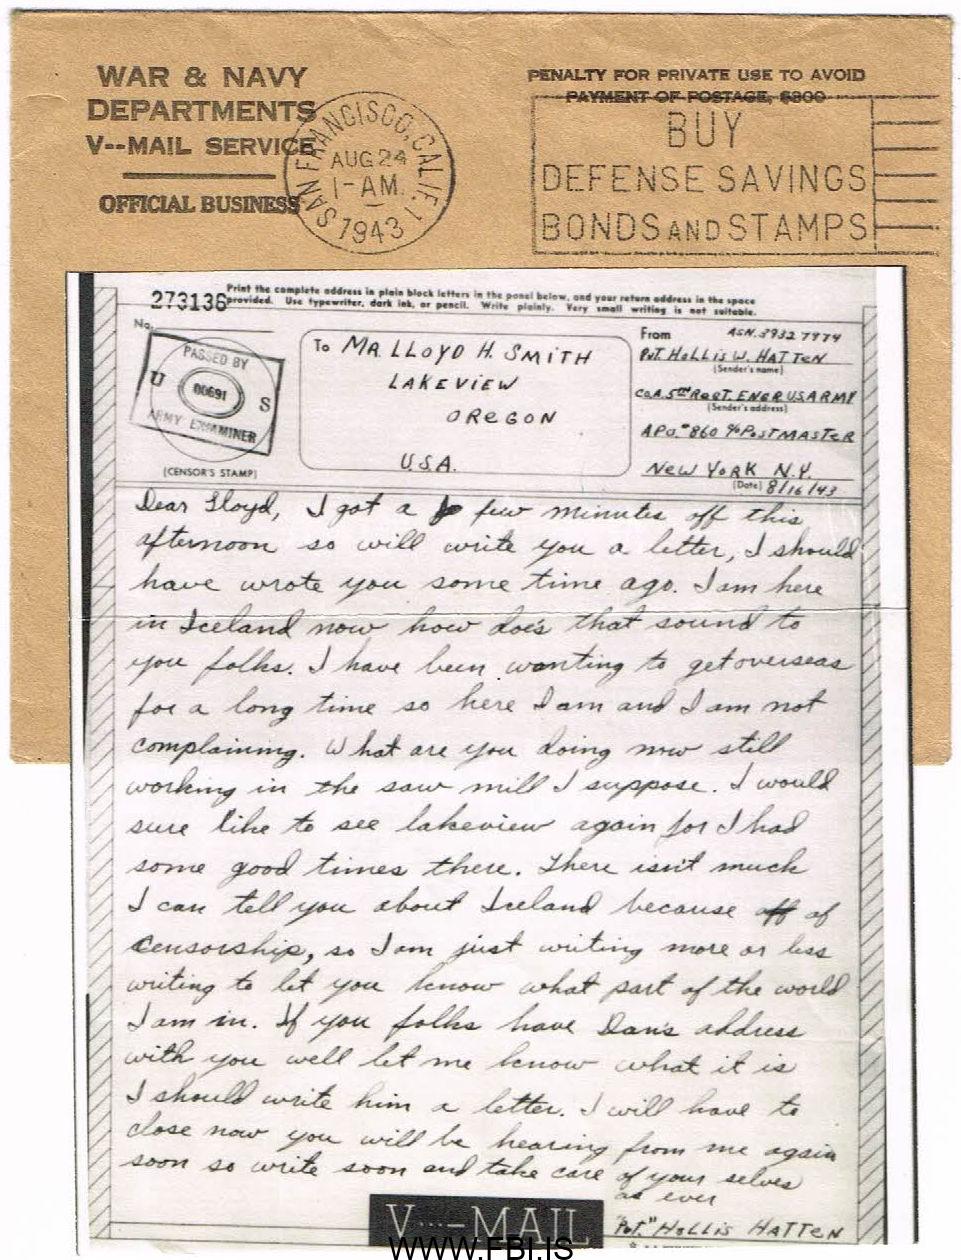 WAR & NAVY
DEPARTMENTS
V--MAIL SERVICE
OFFICIAL BUSINESS
SAN FRANCISCO, CALIF. 1
AUG 24
1-AM.
1943
PENALTY FOR PRIVATE USE TO AVOID
PAYMENT OF POSTAGE, $300
BUY
DEFENSE SAVINGS
BONDS AND STAMPS
273136
Print the complete address in plain block letters in the panel below, and your return address in the space
provided. Use typewriter, dark ink, or pencil. Write plainly. Very small writing is not suitable.
No.
PASSED BY
U 00691 S
ARMY EXAMINER
(CENSOR'S STAMP)
To MR. LLOYD H. SMITH
LAKEVIEW
OREGON
U.S.A.
From ASN. 3932 7974
PVT. HOLLIS W. HATTEN
(Sender's name)
CO.A. 5TH REGT. ENGR U.S. ARMY
(Sender's address)
A.P.O. #860 % POSTMASTER
NEW YORK N.Y.
(Date) 8/16/43
Dear Lloyd, I got a few minutes off this
afternoon so will write you a letter, I should
have wrote you some time ago. I am here
in Iceland now how does that sound to
you folks. I have been wanting to get overseas
for a long time so here I am and I am not
complaining. What are you doing now still
working in the saw mill I suppose. I would
sure like to see lakeview again for I had
some good times there. There isn't much
I can tell you about Iceland because off of
censorship, so I am just writing more or less
writing to let you know what part of the world
I am in. If you folks have Dan's address
with you well let me know what it is
I should write him a letter. I will have to
close now you will be hearing from me again
soon so write soon and take care of your selves
as ever
"Pvt." HOLLIS HATTEN
V···-MAIL
WWW.FBI.IS